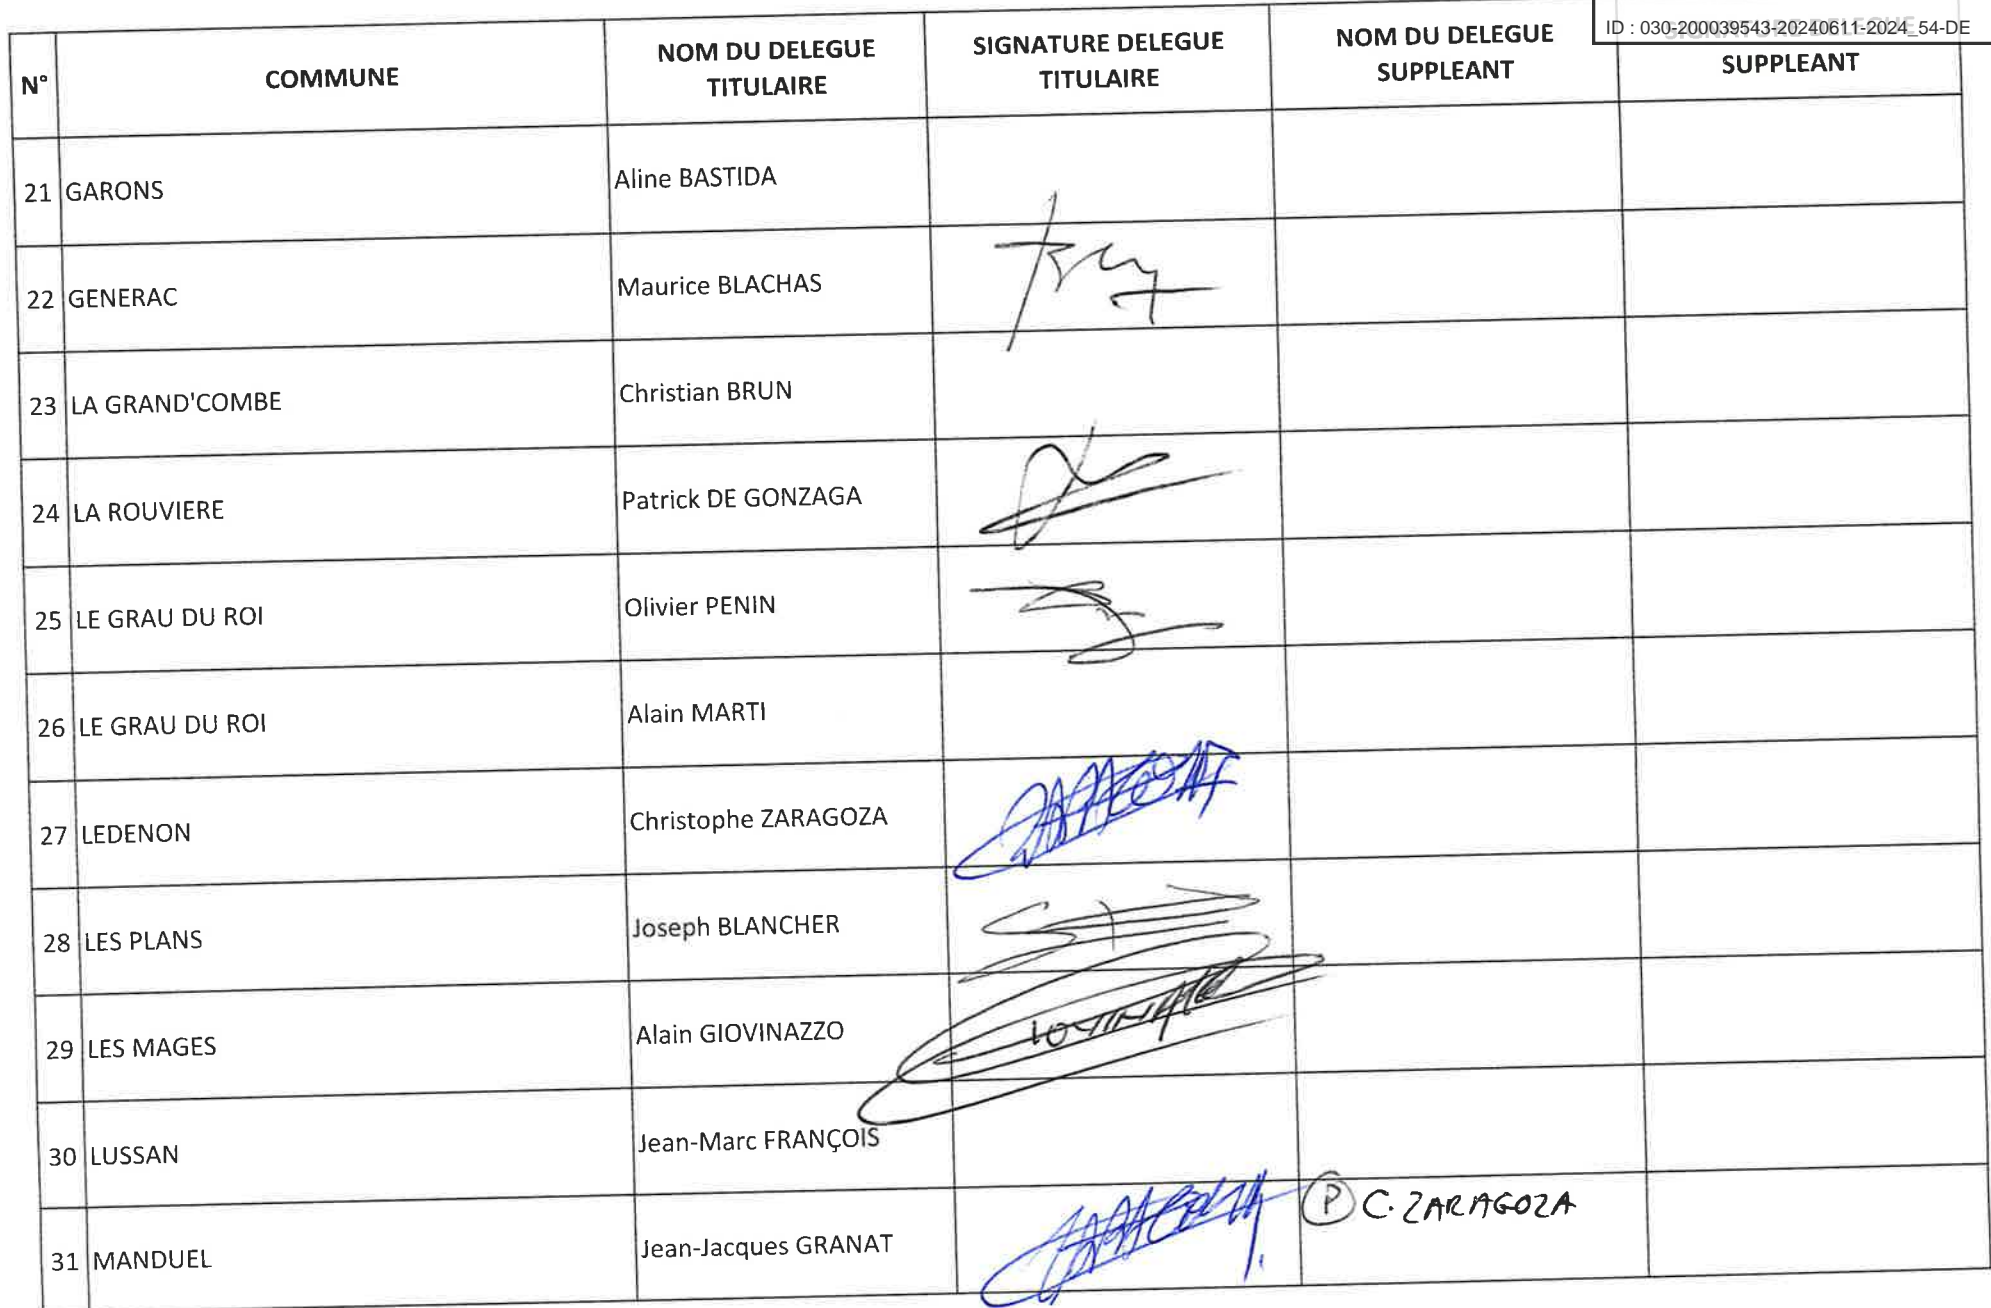 ID : 030-200039543-20240611-2024_54-DE
N° COMMUNE NOM DU DELEGUE TITULAIRE SIGNATURE DELEGUE TITULAIRE NOM DU DELEGUE SUPPLEANT SIGNATURE DELEGUE SUPPLEANT
21 GARONS Aline BASTIDA
22 GENERAC Maurice BLACHAS
23 LA GRAND'COMBE Christian BRUN
24 LA ROUVIERE Patrick DE GONZAGA
25 LE GRAU DU ROI Olivier PENIN
26 LE GRAU DU ROI Alain MARTI
27 LEDENON Christophe ZARAGOZA
28 LES PLANS Joseph BLANCHER
29 LES MAGES Alain GIOVINAZZO
30 LUSSAN Jean-Marc FRANÇOIS
31 MANDUEL Jean-Jacques GRANAT P C. ZARAGOZA